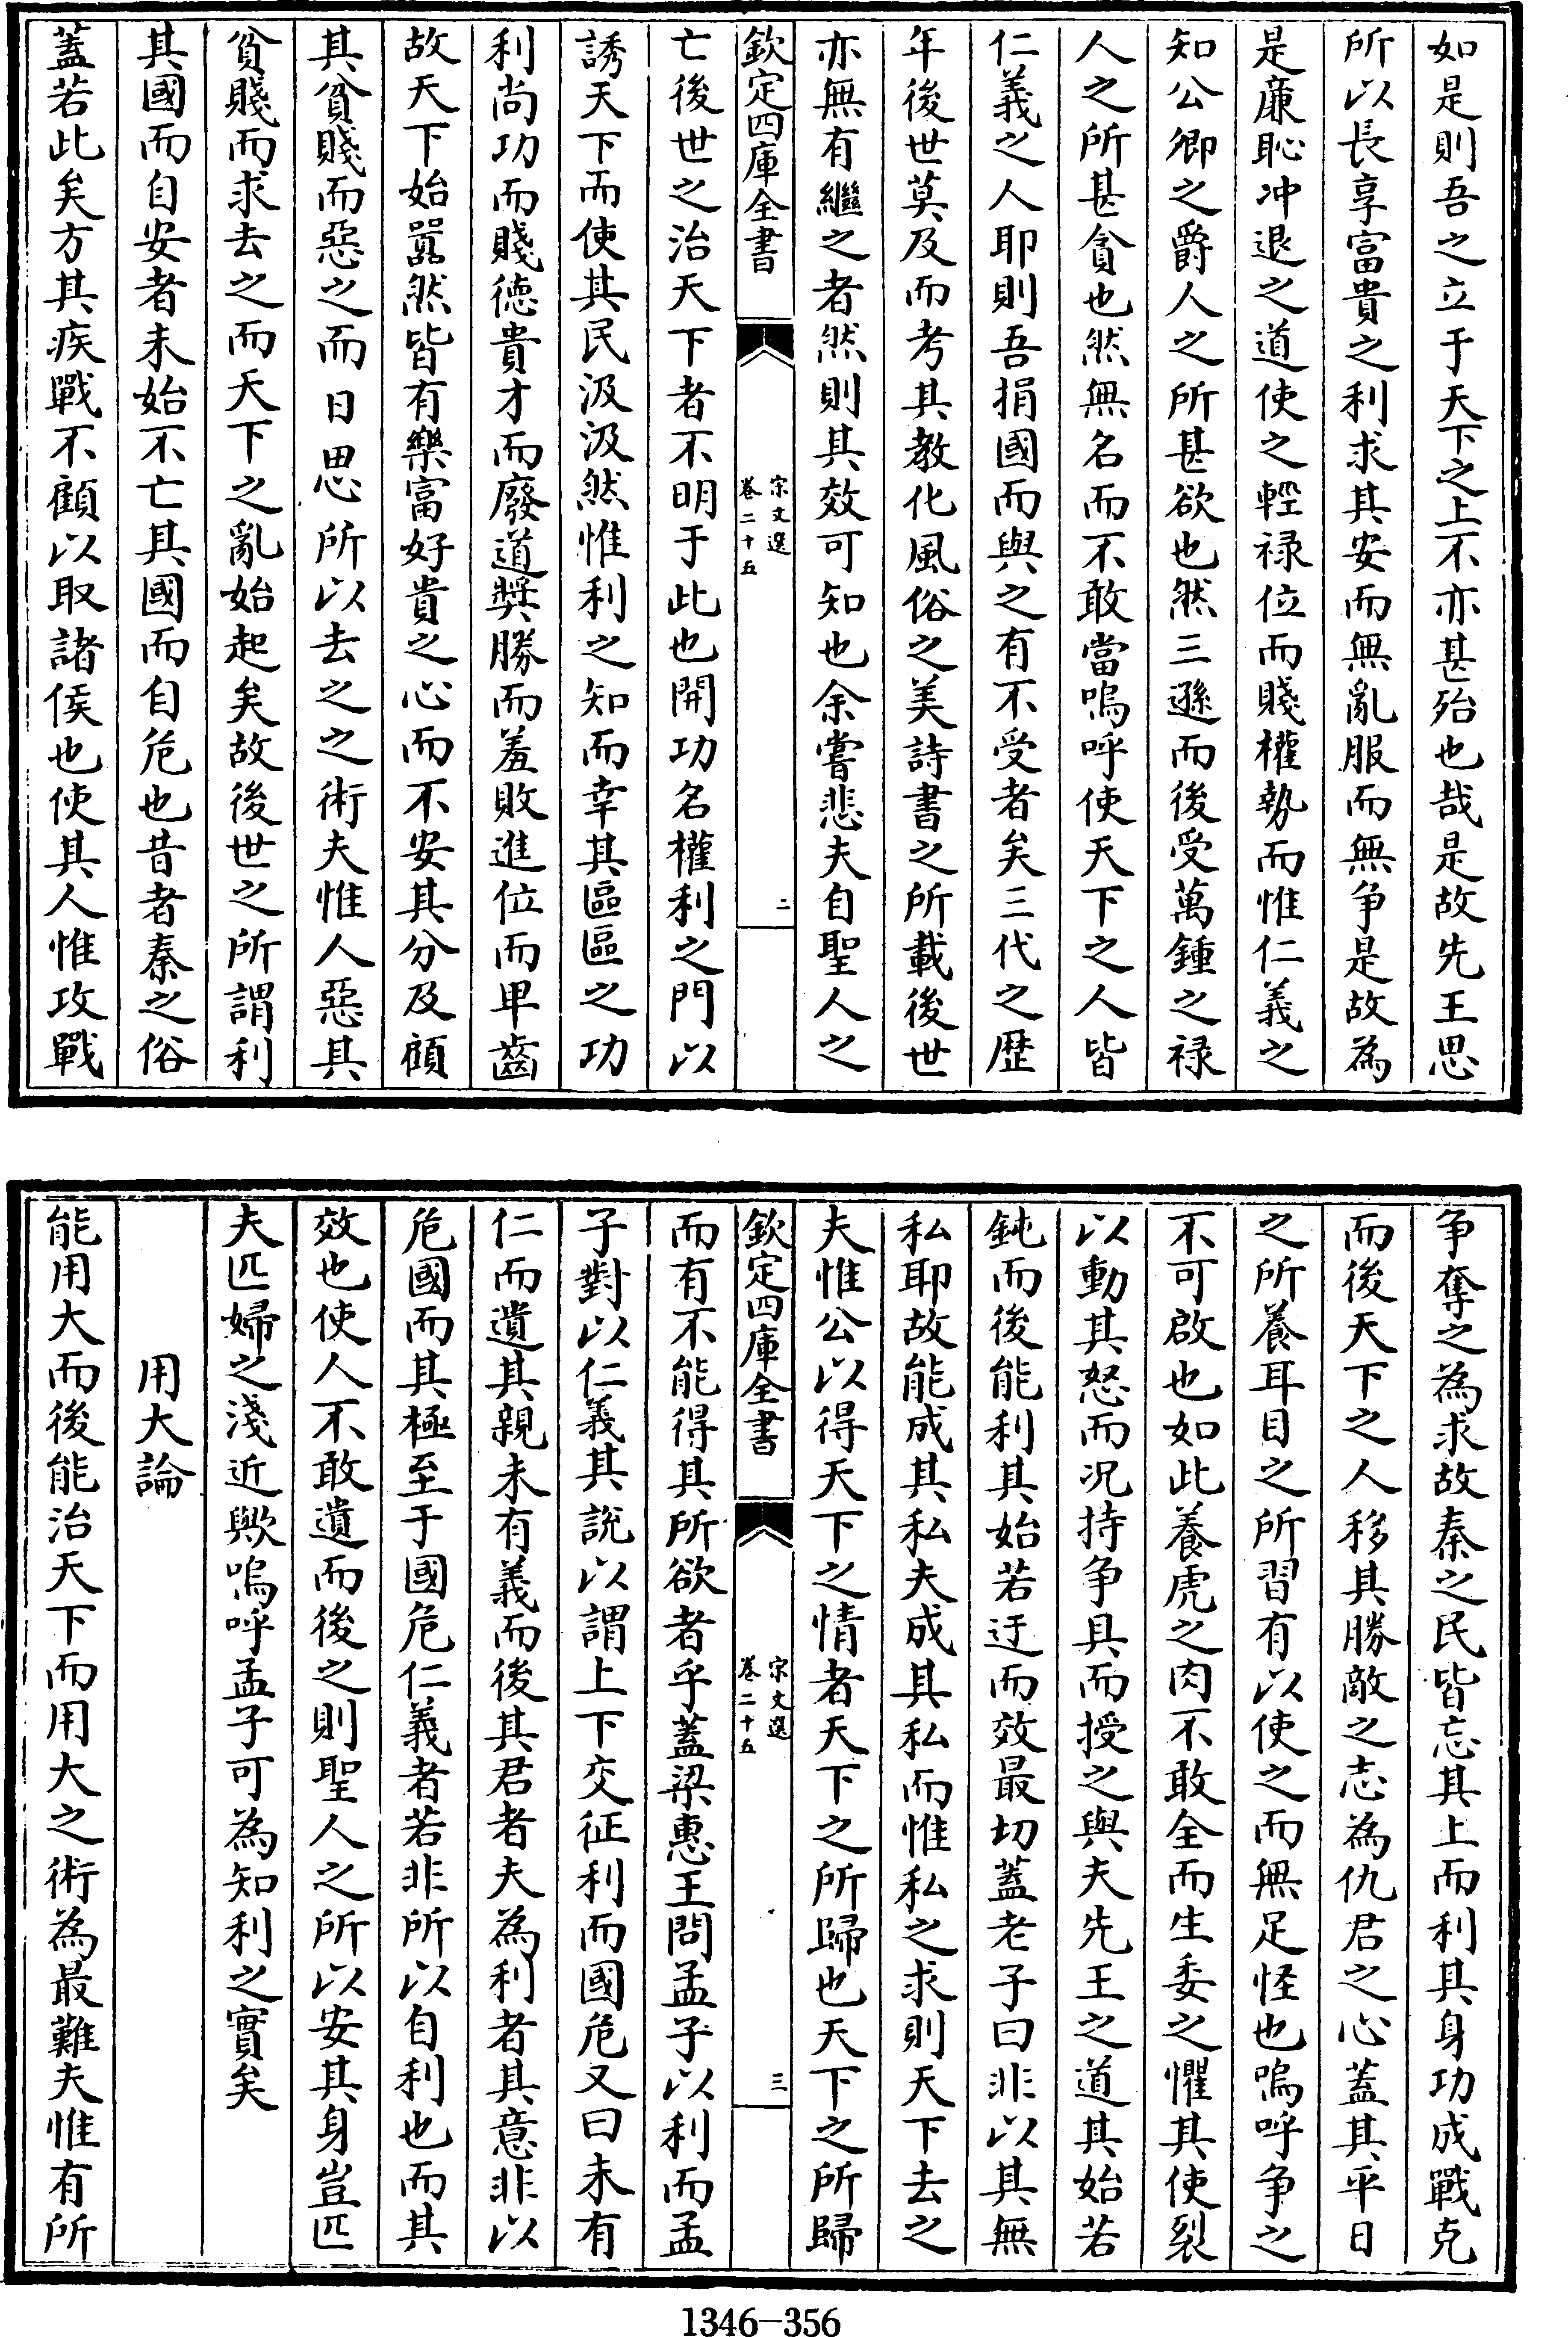 如是則吾之立于天下之上不亦甚殆也哉是故先王思
所以長享富貴之利求其安而無亂服而無争是故為
是廉恥冲退之道使之輕禄位而賤權勢而惟仁義之
知公卿之爵人之所甚欲也然三遜而後受萬鍾之禄
人之所甚貪也然無名而不敢當嗚呼使天下之人皆
仁義之人耶則吾捐國而與之有不受者矣三代之歴
年後世莫及而考其教化風俗之美詩書之所載後世
亦無有繼之者然則其效可知也余嘗悲夫自聖人之
欽定四庫全書
宋文選
卷二十五
二
亡後世之治天下者不明于此也開功名權利之門以
誘天下而使其民汲汲然惟利之知而幸其區區之功
利尚功而賤徳貴才而廢道奬勝而羞敗進位而卑齒
故天下始嚣然皆有樂富好貴之心而不安其分及顧
其貧賤而惡之而日思所以去之之術夫惟人惡其
貧賤而求去之而天下之亂始起矣故後世之所謂利
其國而自安者未始不亡其國而自危也昔者秦之俗
蓋若此矣方其疾戰不顧以取諸侯也使其人惟攻戰
争奪之為求故秦之民皆忘其上而利其身功成戰克
而後天下之人移其勝敵之志為仇君之心蓋其平日
之所養耳目之所習有以使之而無足怪也嗚呼争之
不可啟也如此養虎之肉不敢全而生委之懼其使裂
以動其怒而况持争具而授之與夫先王之道其始若
鈍而後能利其始若迂而效最切蓋老子曰非以其無
私耶故能成其私夫成其私而惟私之求則天下去之
夫惟公以得天下之情者天下之所歸也天下之所歸
欽定四庫全書
宋文選
卷二十五
三
而有不能得其所欲者乎蓋梁惠王問孟子以利而孟
子對以仁義其說以謂上下交征利而國危又曰未有
仁而遺其親未有義而後其君者夫為利者其意非以
危國而其極至于國危仁義者若非所以自利也而其
效也使人不敢遺而後之則聖人之所以安其身豈匹
夫匹婦之淺近歟嗚呼孟子可為知利之實矣
用大論
能用大而後能治天下而用大之術為最難夫惟有所
1346-356